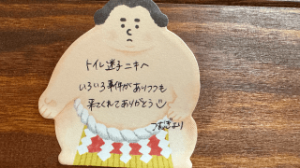 トイレ迷子ニキへ
いろいろ事件がありつつも
来てくれてありがとう
より